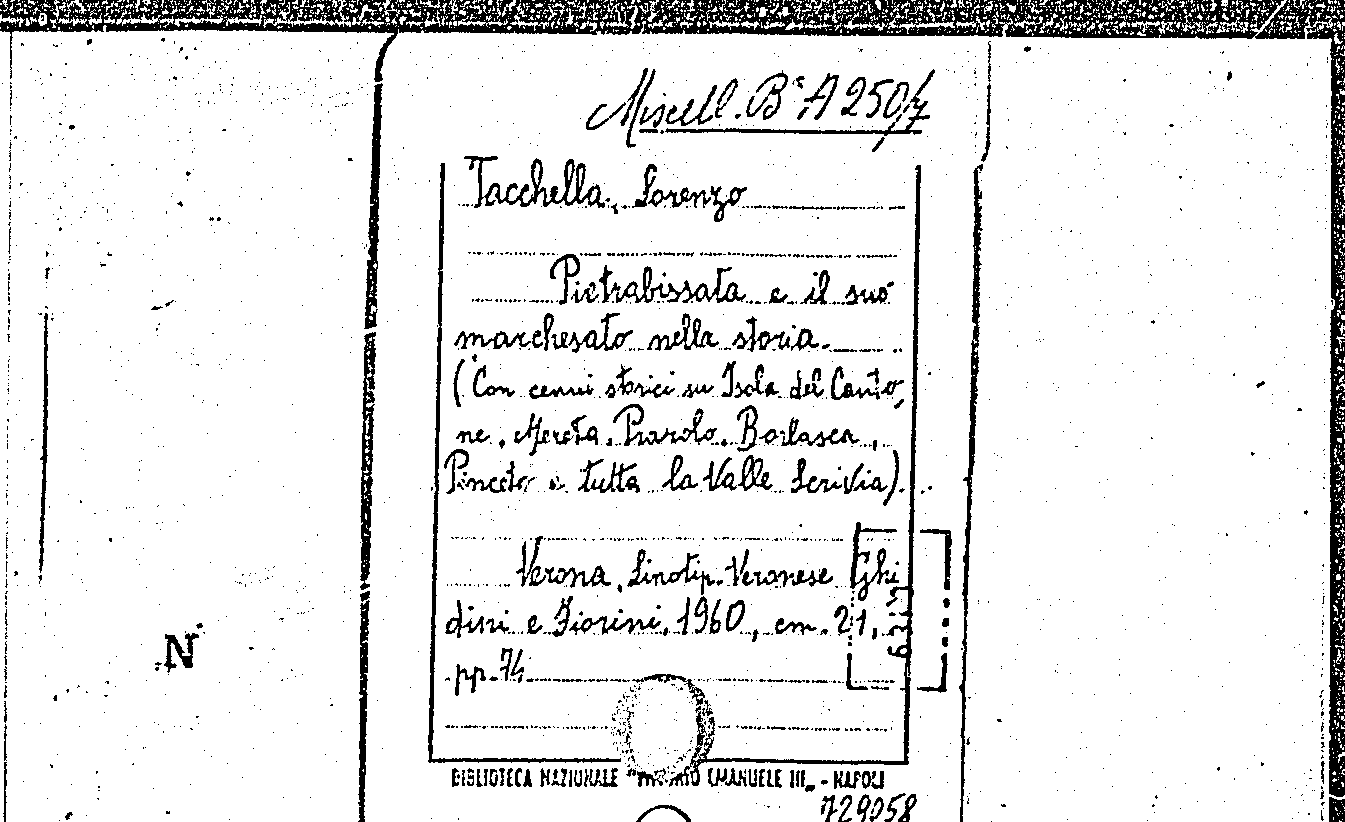 Miscell. Bª A 250/7
Tacchella, Lorenzo
Pietrabissata e il suo
marchesato nella storia.
(Con cenni storici su Isola del Canto,
ne, Mereta, Prarolo, Borlasca,
Pinceto e tutta la Valle Scrivia).
Verona, Linotip. Veronese Ghi
dini e Fiorini, 1960, cm. 21,
pp. 74
BIBLIOTECA NAZIONALE "VITTORIO EMANUELE III„ - NAPOLI
729058
N